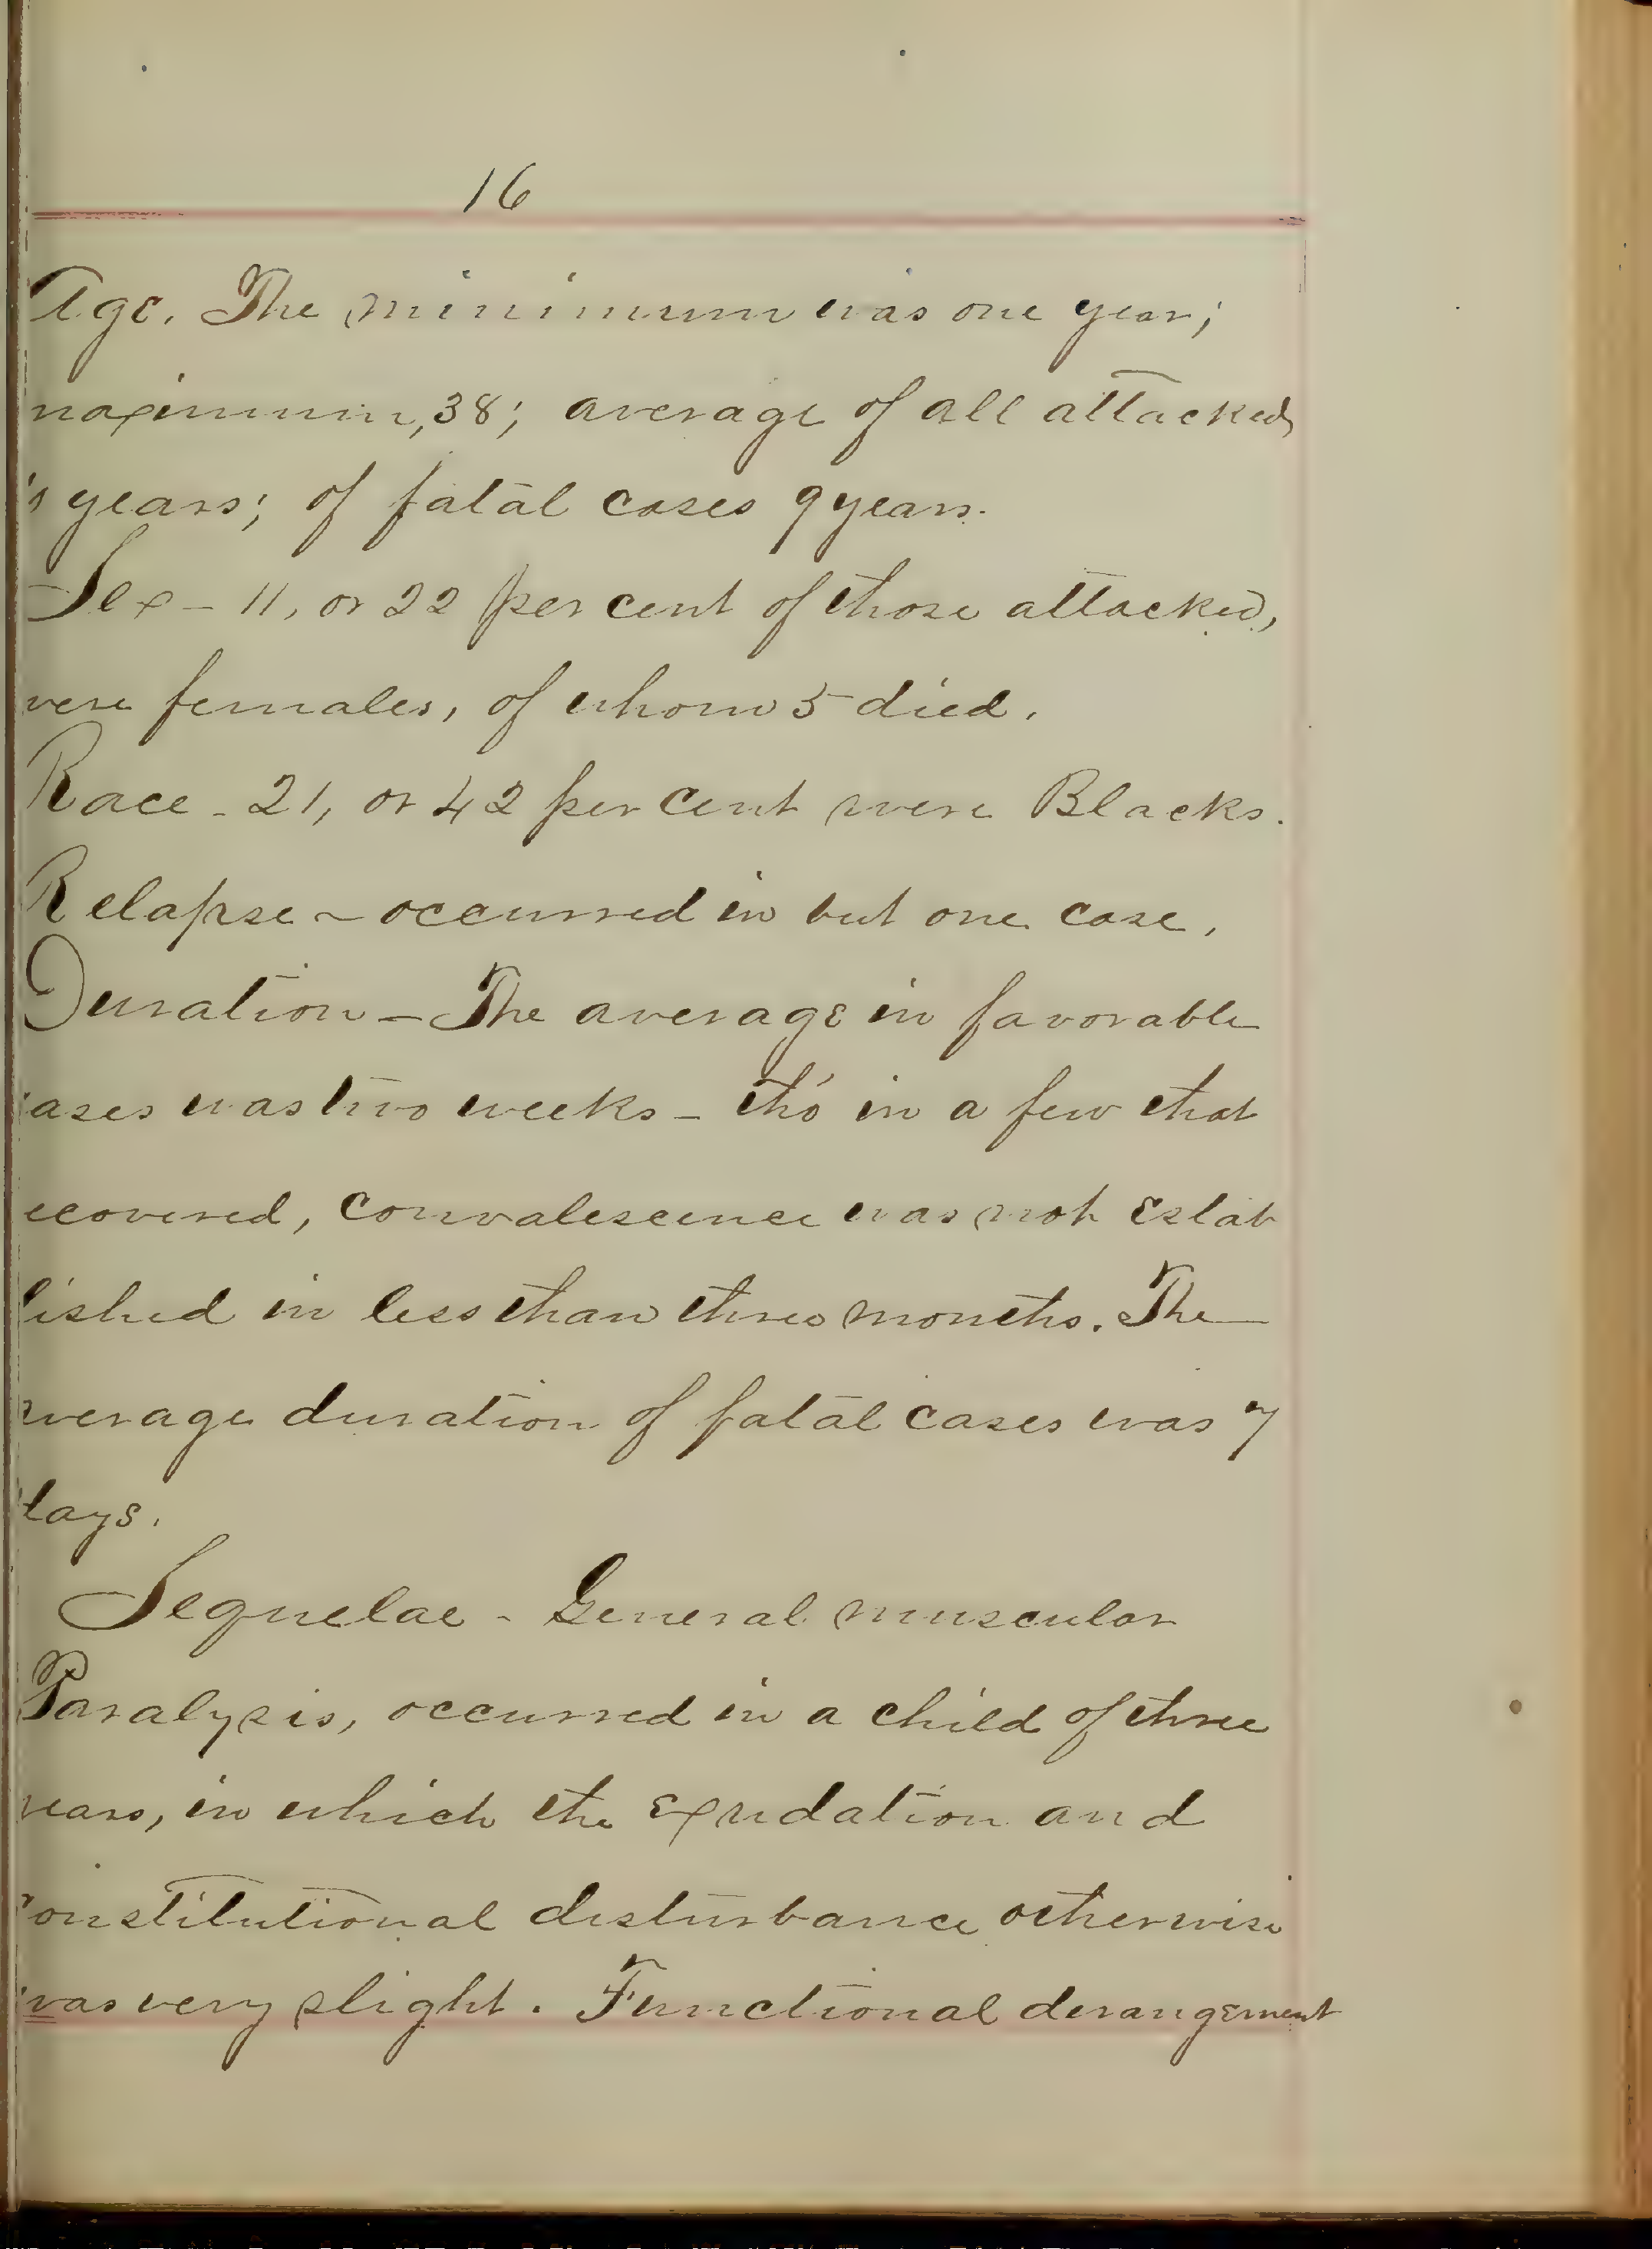 16
Age. The minimum was one year;
maximum, 38; average of all attacked
years; of fatal cases 9 years.
Sex - 11, or 22 per cent of those attacked,
were females, of whom 5 died.
Race - 21, or 42 per cent were Blacks.
Relapse - occurred in but one case.
Duration - The average in favorable
cases was two weeks - tho' in a few that
recovered, convalescence was not estab
lished in less than three months. The
average duration of fatal cases was 7
days.
Sequelae - General muscular
Paralysis, occurred in a child of three
years, in which the exudation and
constitutional disturbance otherwise
was very slight. Functional derangement